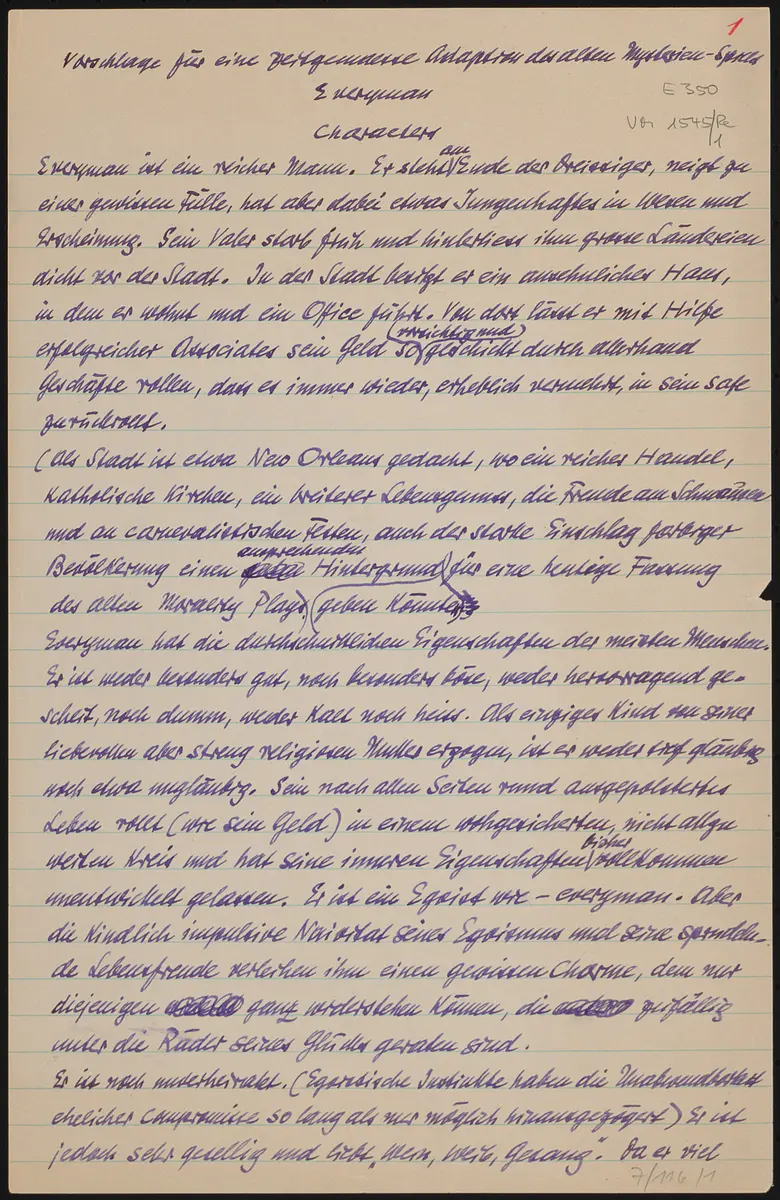 1
Vorschlage für eine zeitgemaesse Adaption des alten Mysterien-Spieles
Everyman
E 350
Von 1545/Re
1
Characters
Everyman ist ein reicher Mann. Er steht am Ende der Dreissiger, neigt zu
einer gewissen Fülle, hat aber dabei etwas Jungenhaftes in Wesen und
Erscheinung. Sein Vater starb früh und hinterliess ihm grosse Ländereien
dicht vor der Stadt. In der Stadt besitzt er ein ansehnliches Haus,
in dem er wohnt und ein Office führt. Von dort lässt er mit Hilfe
erfolgreicher Associates sein Geld so (vorsichtig und) geschickt durch allerhand
Geschäfte rollen, dass es immer wieder, erheblich vermehrt, in sein Safe
zurückrollt.
(Als Stadt ist etwa New Orleans gedacht, wo ein reicher Handel,
Katholische Kirchen, ein breiterer Lebensgenuss, die Freude am Schmausen
und an carnevalistischen Festen, auch der starke Einschlag farbiger
Bevölkerung einen ansprechenden Hintergrund für eine heutige Fassung
des alten Morality Plays geben könnte)
Everyman hat die durchschnittlichen Eigenschaften der meisten Menschen.
Er ist weder besonders gut, noch besonders böse, weder hervorragend ge-
scheit, noch dumm, weder kalt noch heiss. Als einziges Kind von seiner
liebevollen aber streng religiösen Mutter erzogen, ist er weder tief gläubig
noch etwa ungläubig. Sein nach allen Seiten rund ausgepolstertes
Leben rollt (wie sein Geld) in einem wohgesicherten, nicht allzu
weiten Kreis und hat seine inneren Eigenschaften bisher vollkommen
unentwickelt gelassen. Er ist ein Egoist wie – everyman. Aber
die kindlich impulsive Naivität seines Egoismus und seine sprudeln-
de Lebensfreude verleihen ihm einen gewissen Charme, dem nur
diejenigen ganz widerstehen können, die zufällig
unter die Räder seines Glücks geraten sind.
Er ist noch unverheiratet. (Egoistische Instinkte haben die Unabwendbarkeit
ehelicher Compromisse so lang als nur möglich hinausgezögert) Er ist
jedoch sehr gesellig und liebt „Wein, Weib, Gesang". Da er viel
7/116/1